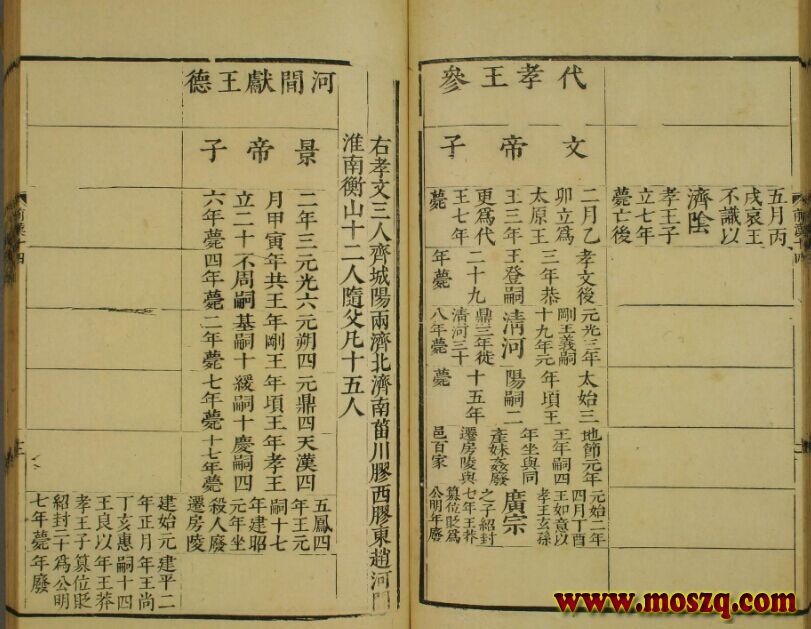 五月丙
戌哀王
不識以
濟陰
孝王子
立七年
薨亡後
代孝王參
文帝子
二月乙
卯立爲
太原王
王三年
更爲代
王七年
薨
孝文後
三年恭
王登嗣
二十九
年薨
元光三年
剛王義嗣
十九年元
清河
鼎三年徙
清河三十
八年薨
太始三
年頃王
陽嗣二
十五年
薨
地節元年
王年嗣四
年坐與同
產妹姦廢
遷房陵與
邑百家
元始二年
四月丁酉
王如意以
孝王玄孫
廣宗
之子紹封
七年王莽
篡位貶爲
公明年廢
右孝文三人齊城陽兩濟北濟南菑川膠西膠東趙河間
淮南衡山十二人隨父凡十五人
河間獻王德
景帝子
二年三
月甲寅
立二十
六年薨
元光六
年共王
不周嗣
四年薨
元朔四
年剛王
基嗣十
二年薨
元鼎四
年頃王
緩嗣十
七年薨
天漢四
年孝王
慶嗣四
十七年薨
五鳳四
年王元
嗣十七
年建昭
元年坐
殺人廢
遷房陵
建始元
年正月
丁亥惠
王良以
孝王子
紹封二十
七年薨
建平二
年王尚
嗣十四
年王莽
篡位貶
爲公明
年廢
www.moszq.com